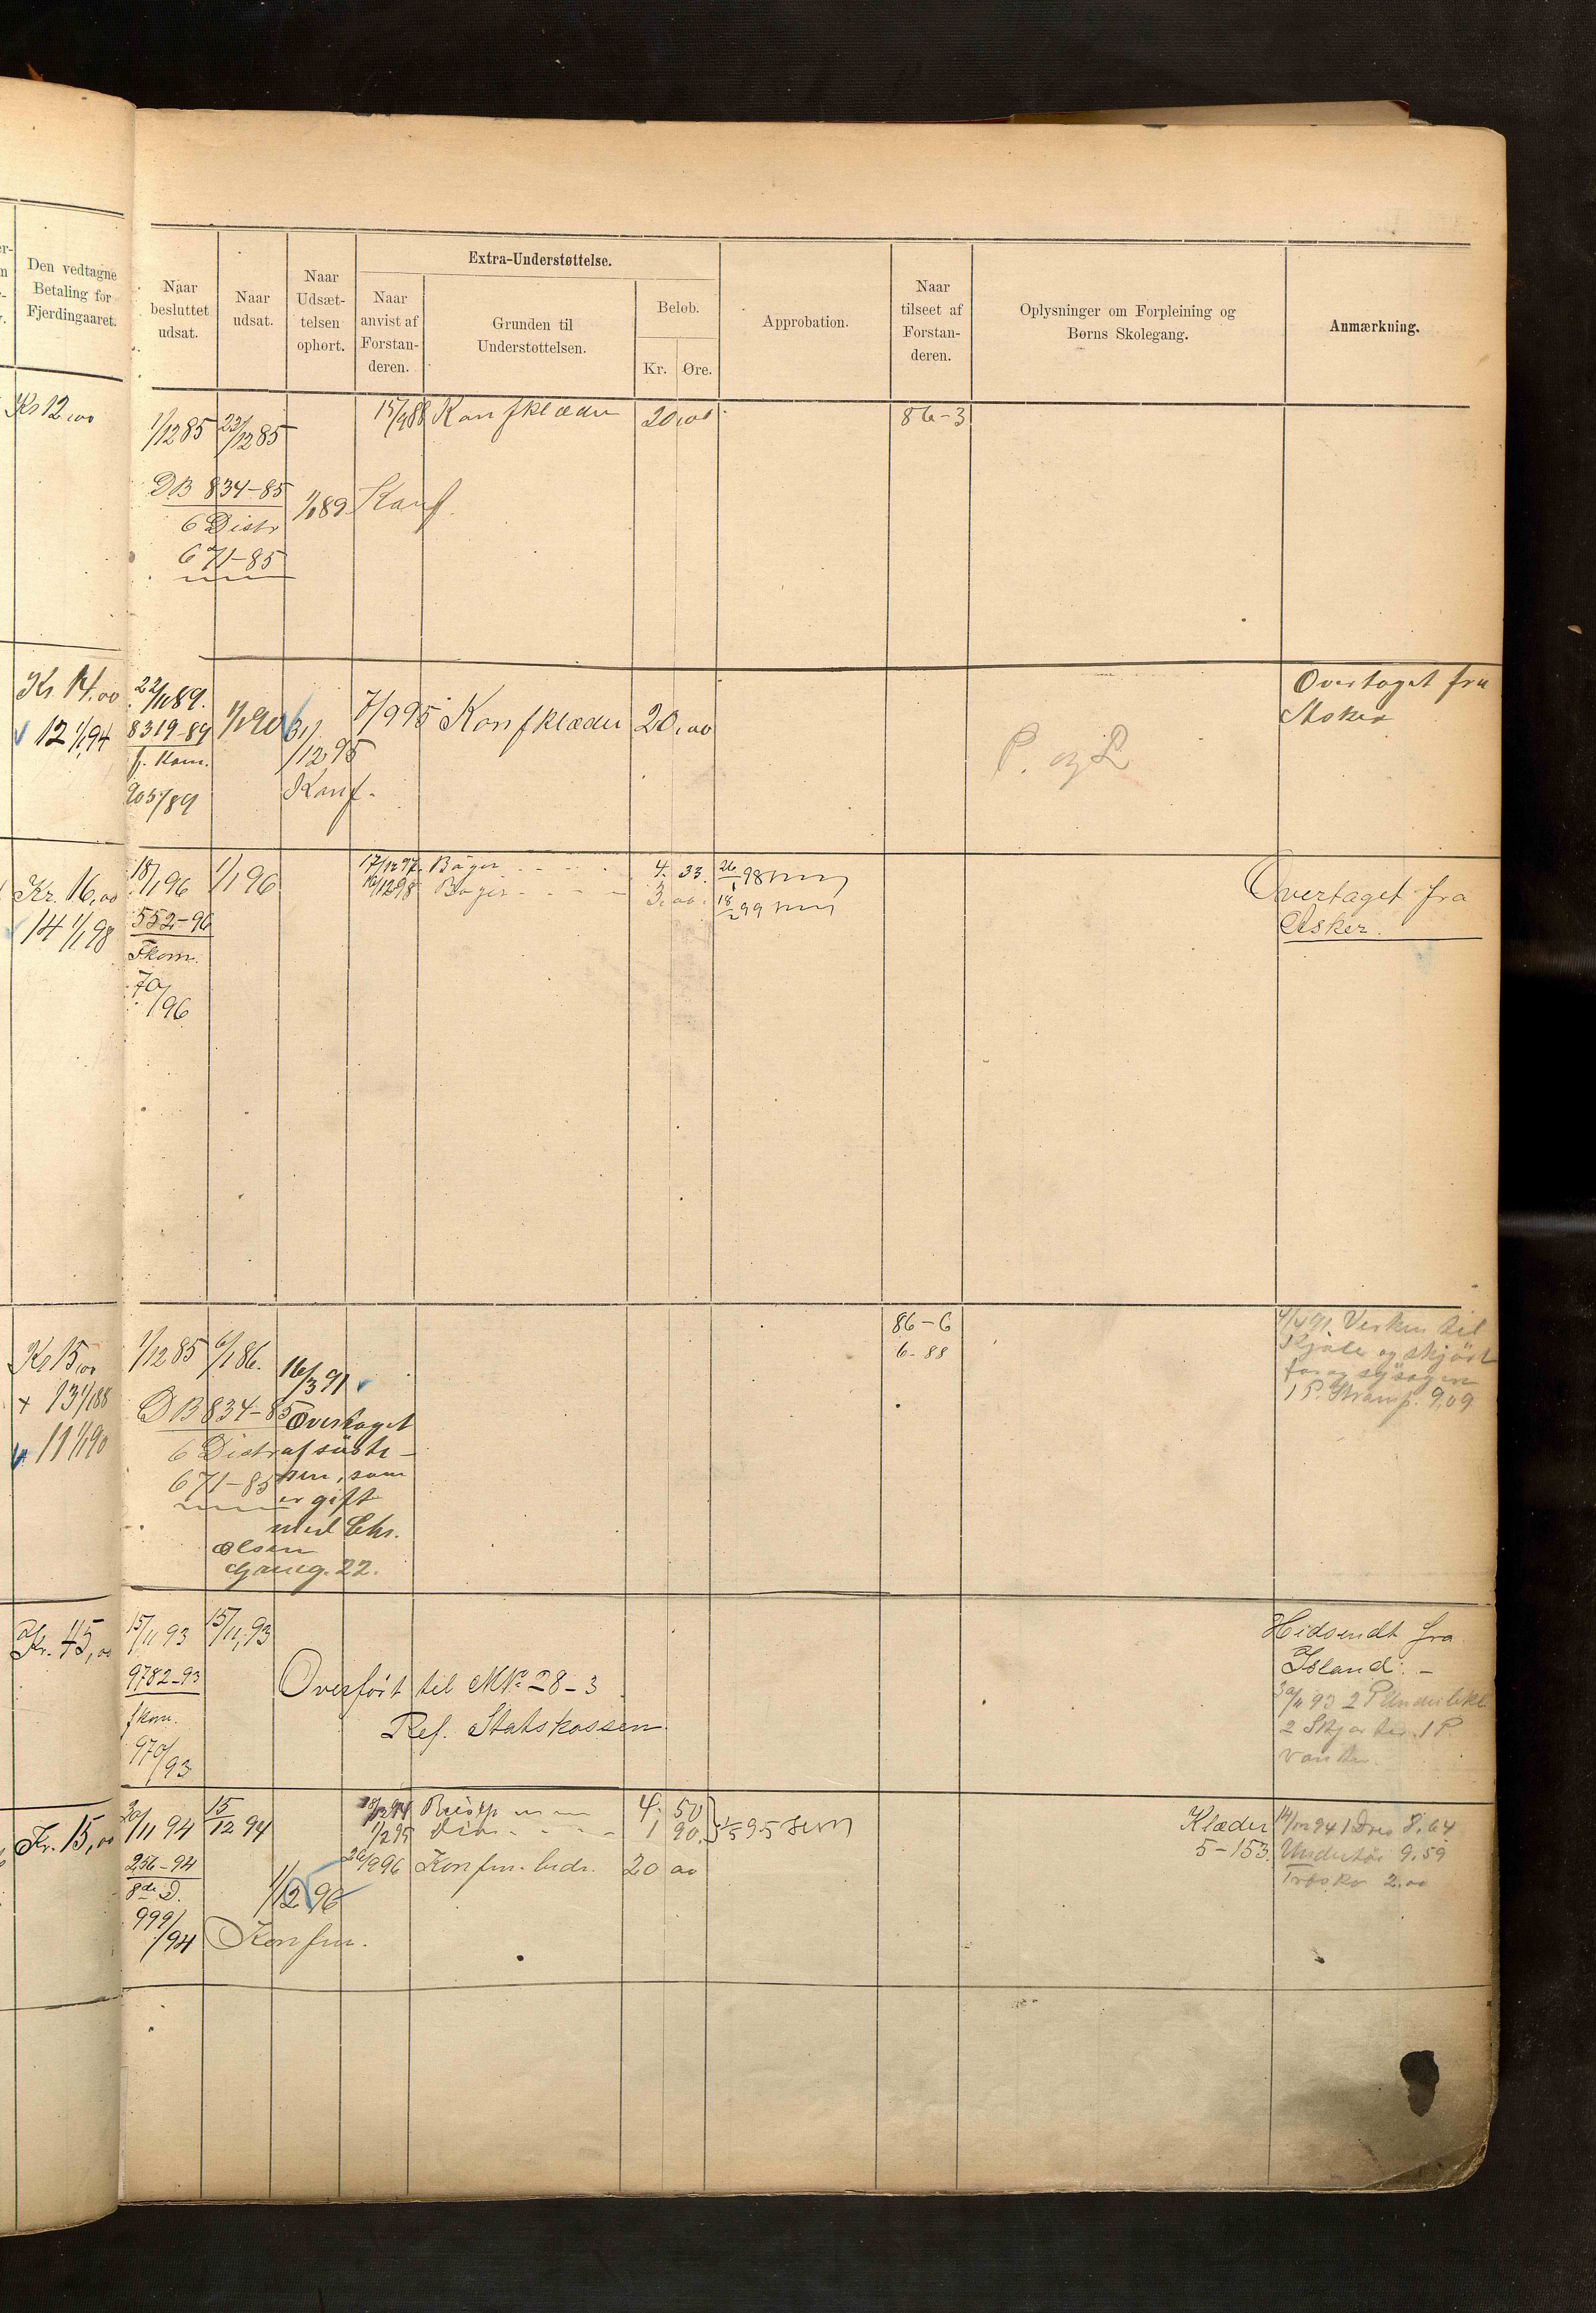 Den vedtagne
Betaling for
Fjerdingaaret.
Naar
besluttet
udsat.
Naar
udsat.
Naar
Udsæt-
telsen
ophørt.
Extra-Understøttelse.
Naar
anvist af
Forstan-
deren.
Grunden til
Understøttelsen.
Beløb.
Kr. Øre.
Approbation.
Naar
tilseet af
Forstan-
deren.
Oplysninger om Forpleining og
Børns Skolegang.
Anmærkning.
Kr 12,00
1/12 85 23/12 85 15/9 88 Konfklæder 20,00 86-3
DB 834-85
6 Distr
671-85
1/1 89 Konf.
Kr. 14,00
12 1/1 94
22/11 89. 1/1 90 31/12 95 7/9 95 Konfklæder 20,00
8319-89
f. Kom.
905/89
Konf.
P. og L
Overtaget fra
Asker
Kr. 16,00
14 1/1 98
18/1 96 1/1 96 17/12 97. Bøger 4. 33. 26/1 98
16/12 98 Bøger 3,00. 18/2 99
552-96
Fkom.
70/96
Overtaget fra
Asker.
Kr 15,00
+ 13 1/1 88
11 1/1 90
1/12 85 6/1 86. 16/3 91
86-6
6-88
DB 834-85
6 Distr
671-85
Overtaget
af søste-
ren, som
er gift
med Chr.
Olsen
22.
4/4 91 Verken til
Kjole og skjört
1 P. Strømp. 9,09
Kr. 45,00
15/11 93 15/11 93
9782-93
fkom.
970/93
Overført til MNo 28-3
Ref. Statskassen.
Hidsendt fra
Island. -
30/11 93 2 P Underbkl.
2 Skjorter. 1 P.
vanter.
Kr. 15,00
30/11 94 15/12 94 4. 50
1/2 95 dio 1 90.
26/9 96 Konfm. 20 00
256-94
8de D.
999/94
1/12 96
Konfm.
Klæder
5-153.
14/12 94 1 Dres 8.64
Undertøi 9.59
Træsko 2.00